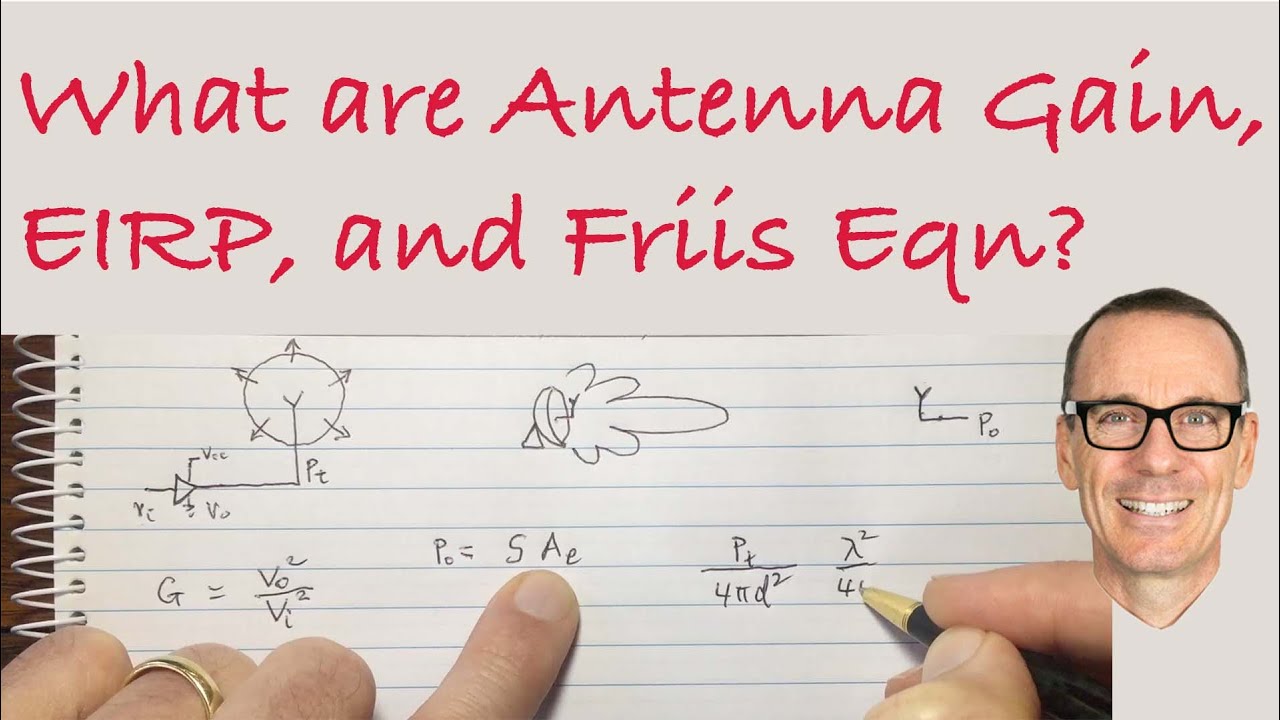 What are Antenna Gain,
EIRP, and Friis Eqn?
Vcc
Pt
Vi
Vo
Po
G = Vo²/Vi²
Po = S Ae
Pt/4πd² λ²/4